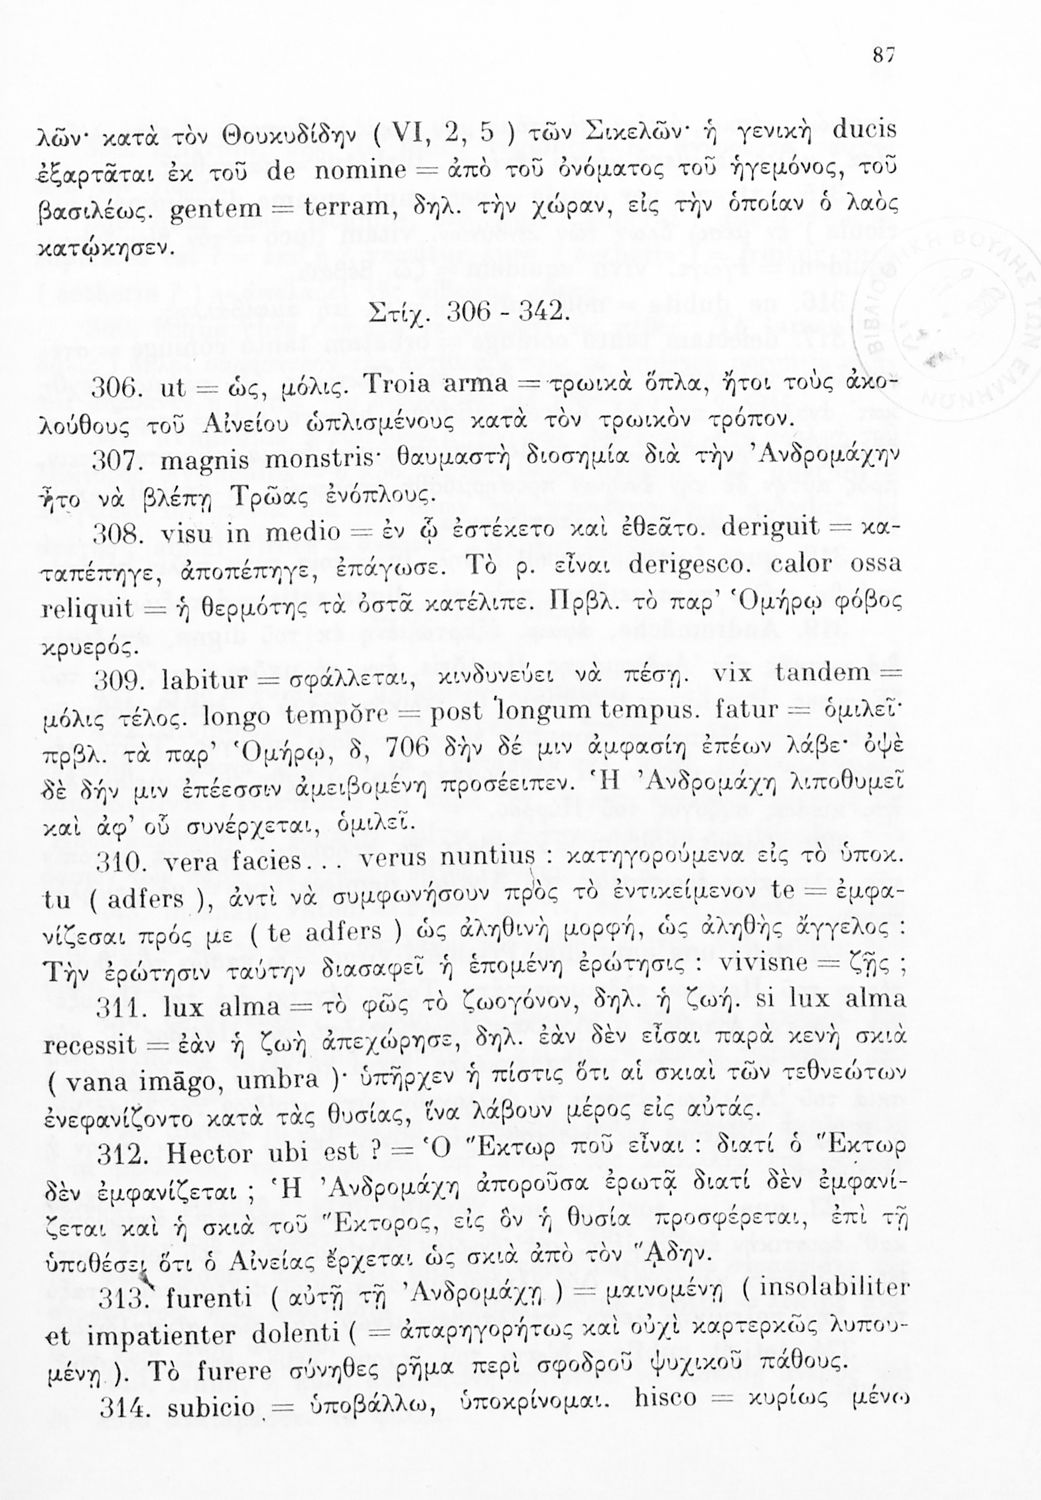 87
λῶν· κατὰ τὸν Θουκυδίδην ( VI, 2, 5 ) τῶν Σικελῶν· ἡ γενικὴ ducis
ἐξαρτᾶται ἐκ τοῦ de nomine = ἀπὸ τοῦ ὀνόματος τοῦ ἡγεμόνος, τοῦ
βασιλέως. gentem = terram, δηλ. τὴν χώραν, εἰς τὴν ὁποίαν ὁ λαὸς
κατῴκησεν.
Στίχ. 306 - 342.
306. ut = ὡς, μόλις. Troia arma = τρωικὰ ὅπλα, ἤτοι τοὺς ἀκο-
λούθους τοῦ Αἰνείου ὡπλισμένους κατὰ τὸν τρωικὸν τρόπον.
307. magnis monstris· θαυμαστὴ διοσημία διὰ τὴν Ἀνδρομάχην
ἦτο νὰ βλέπῃ Τρῶας ἐνόπλους.
308. visu in medio = ἐν ᾧ ἐστέκετο καὶ ἐθεᾶτο. deriguit = κα-
ταπέπηγε, ἀποπέπηγε, ἐπάγωσε. Τὸ ρ. εἶναι derigesco. calor ossa
reliquit = ἡ θερμότης τὰ ὀστᾶ κατέλιπε. Πρβλ. τὸ παρ' Ὁμήρῳ φόβος
κρυερός.
309. labitur = σφάλλεται, κινδυνεύει νὰ πέσῃ. vix tandem =
μόλις τέλος. longo tempŏre = post longum tempus. fatur = ὁμιλεῖ·
πρβλ. τὰ παρ' Ὁμήρῳ, δ, 706 δὴν δέ μιν ἀμφασίη ἐπέων λάβε· ὀψὲ
δὲ δήν μιν ἐπέεσσιν ἀμειβομένη προσέειπεν. Ἡ Ἀνδρομάχη λιποθυμεῖ
καὶ ἀφ' οὗ συνέρχεται, ὁμιλεῖ.
310. vera facies... verus nuntius : κατηγορούμενα εἰς τὸ ὑποκ.
tu ( adfers ), ἀντὶ νὰ συμφωνήσουν πρὸς τὸ ἐντικείμενον te = ἐμφα-
νίζεσαι πρός με ( te adfers ) ὡς ἀληθινὴ μορφή, ὡς ἀληθὴς ἄγγελος :
Τὴν ἐρώτησιν ταύτην διασαφεῖ ἡ ἑπομένη ἐρώτησις : vivisne = ζῇς ;
311. lux alma = τὸ φῶς τὸ ζωογόνον, δηλ. ἡ ζωή. si lux alma
recessit = ἐὰν ἡ ζωὴ ἀπεχώρησε, δηλ. ἐὰν δὲν εἶσαι παρὰ κενὴ σκιὰ
( vana imāgo, umbra )· ὑπῆρχεν ἡ πίστις ὅτι αἱ σκιαὶ τῶν τεθνεώτων
ἐνεφανίζοντο κατὰ τὰς θυσίας, ἵνα λάβουν μέρος εἰς αὐτάς.
312. Hector ubi est ? = Ὁ Ἕκτωρ ποῦ εἶναι : διατί ὁ Ἕκτωρ
δὲν ἐμφανίζεται ; Ἡ Ἀνδρομάχη ἀποροῦσα ἐρωτᾷ διατί δὲν ἐμφανί-
ζεται καὶ ἡ σκιὰ τοῦ Ἕκτορος, εἰς ὃν ἡ θυσία προσφέρεται, ἐπὶ τῇ
ὑποθέσει ὅτι ὁ Αἰνείας ἔρχεται ὡς σκιὰ ἀπὸ τὸν Ἅδην.
313. furenti ( αὐτῇ τῇ Ἀνδρομάχῃ ) = μαινομένῃ ( insolabiliter
et impatienter dolenti ( = ἀπαρηγορήτως καὶ οὐχὶ καρτερκῶς λυπου-
μένῃ ). Τὸ furere σύνηθες ρῆμα περὶ σφοδροῦ ψυχικοῦ πάθους.
314. subicio = ὑποβάλλω, ὑποκρίνομαι. hisco = κυρίως μένω
ΒΙΒΛΙΟΘΗΚΗ ΒΟΥΛΗΣ ΤΩΝ ΕΛΛΗΝΩΝ